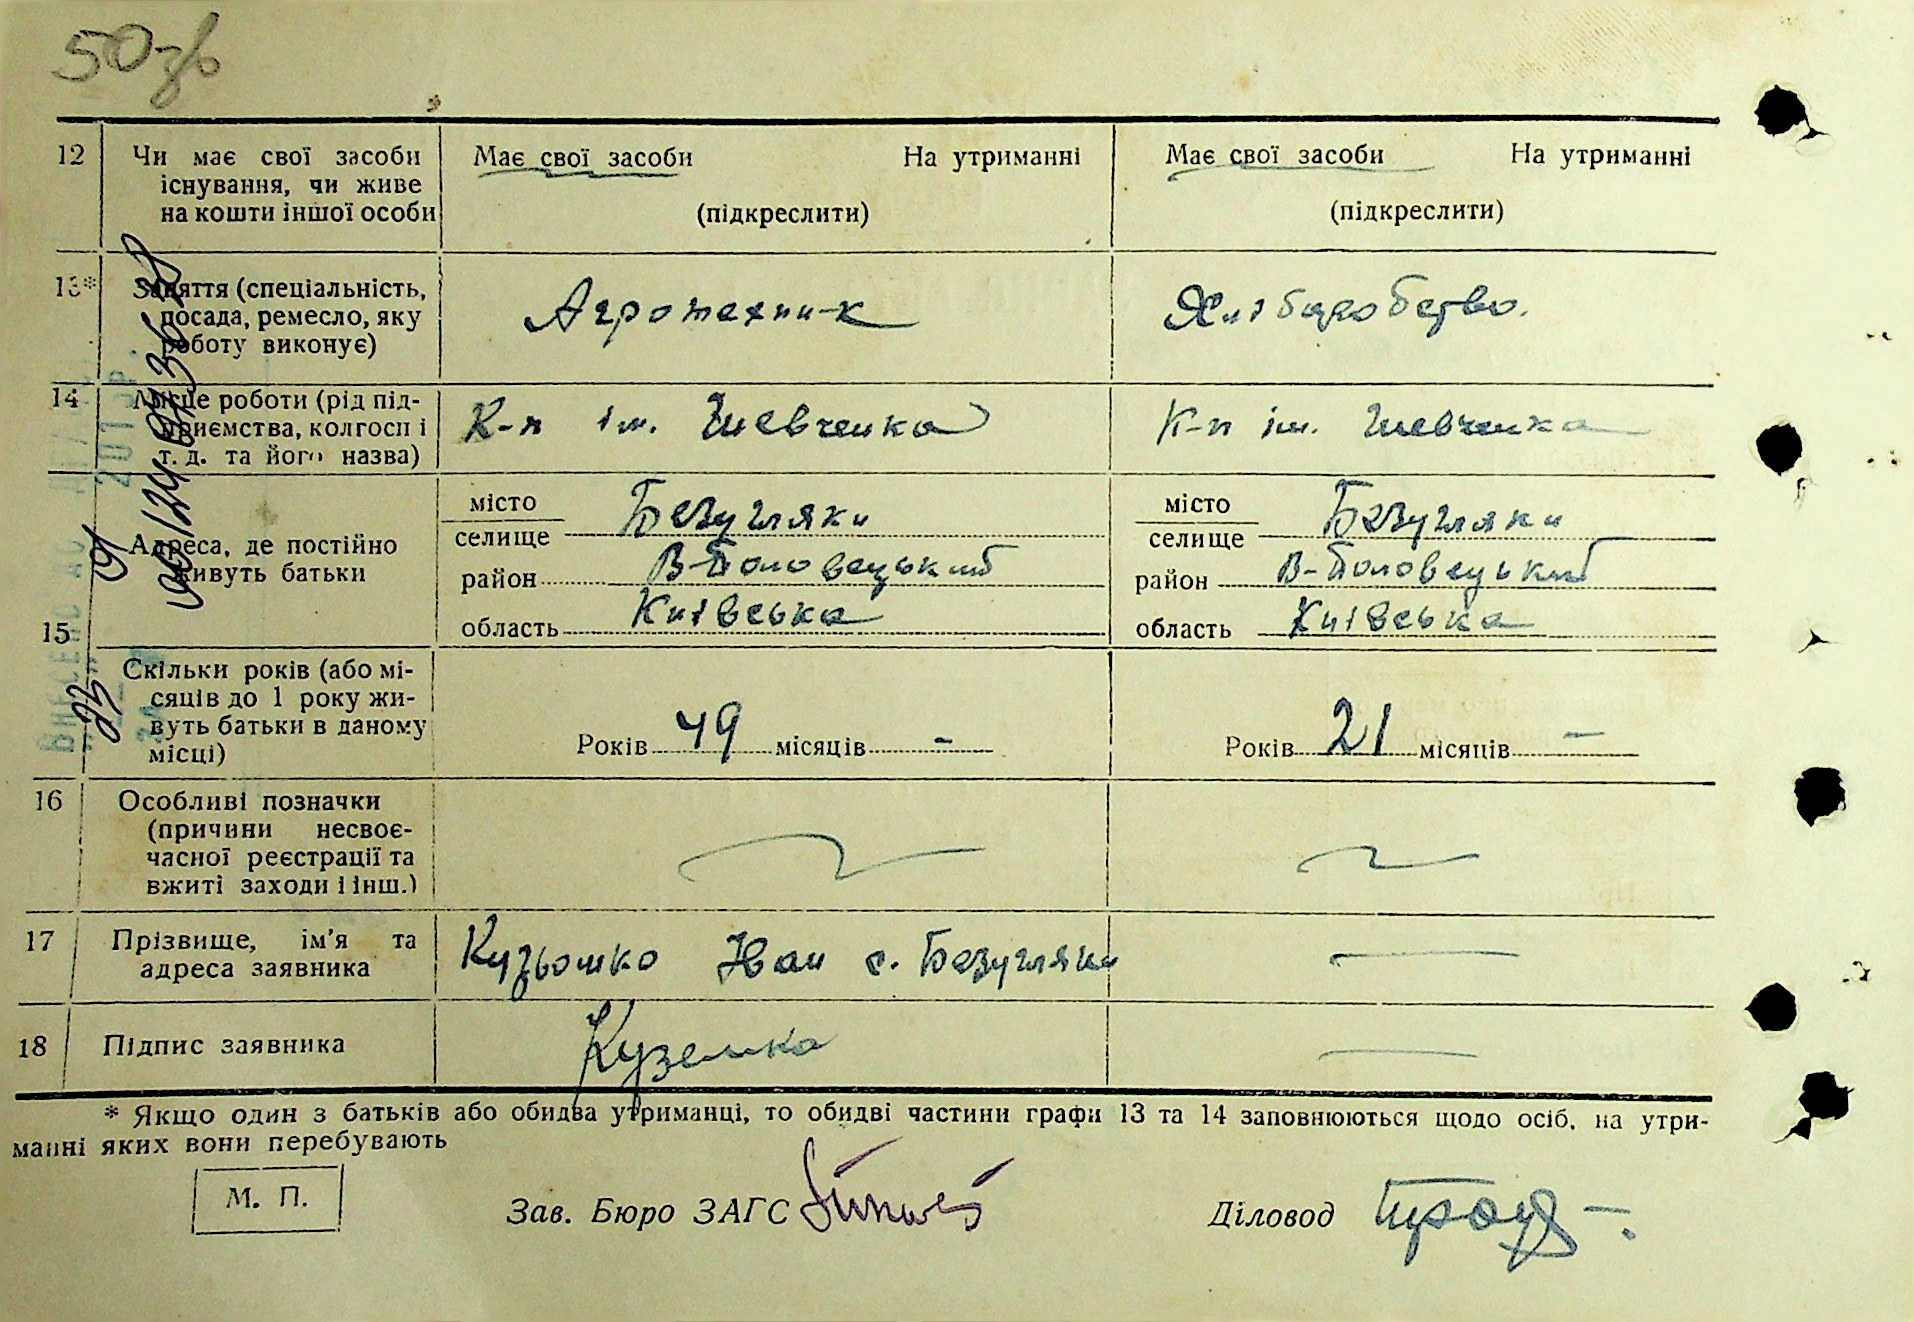 50зв
12 Чи має свої засоби існування, чи живе на кошти іншої особи
Має свої засоби На утриманні
(підкреслити)
Має свої засоби На утриманні
(підкреслити)
13* Заняття (спеціальність, посада, ремесло, яку роботу виконує)
Агротехник
Хліборобство.
14 Місце роботи (рід підприємства, колгосп і т. д. та його назва)
К-п ім. Шевченка
К-п ім. Шевченка
15 Адреса, де постійно живуть батьки
місто
селище Безугляки
район В-Половецький
область Київська
місто
селище Безугляки
район В-Половецький
область Київська
Скільки років (або місяців до 1 року живуть батьки в даному місці)
Років 49 місяців -
Років 21 місяців -
16 Особливі позначки (причини несвоєчасної реєстрації та вжиті заходи і інш.)
17 Прізвище, ім'я та адреса заявника
Кузьомко Іван с. Безугляки
18 Підпис заявника
Куземка
* Якщо один з батьків або обидва утриманці, то обидві частини графи 13 та 14 заповнюються щодо осіб, на утри-
манні яких вони перебувають
М. П.
Зав. Бюро ЗАГС
Діловод